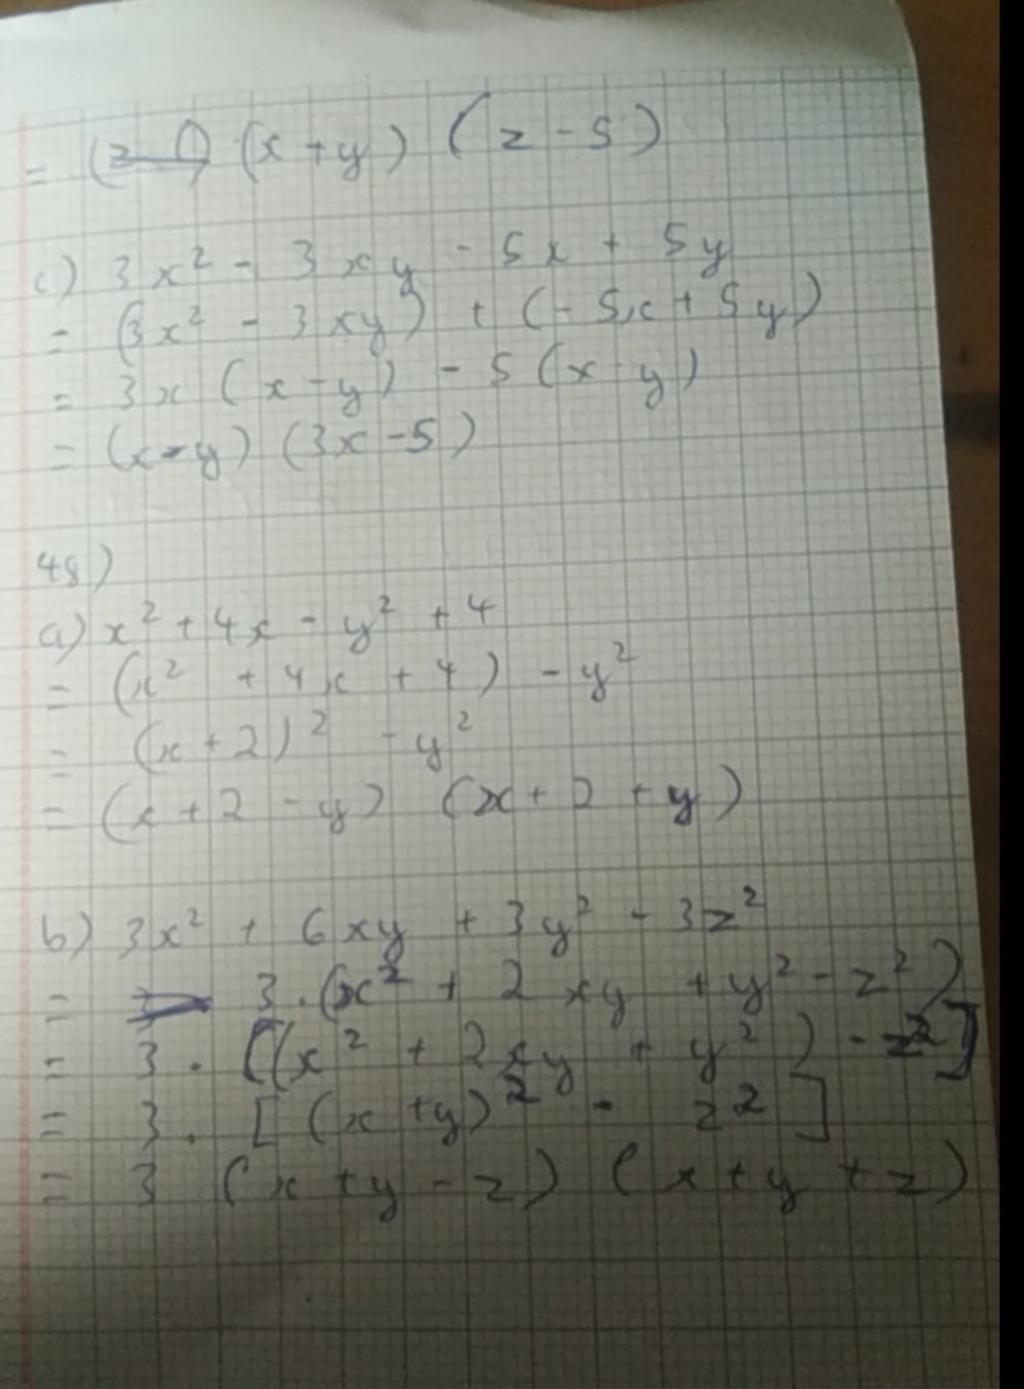 = (x + y) (z - 5)
c) 3x² - 3xy - 5x + 5y
= (3x² - 3xy) + (-5x + 5y)
= 3x (x - y) - 5 (x - y)
= (x - y) (3x - 5)
48)
a) x² + 4x - y² + 4
= (x² + 4x + 4) - y²
= (x + 2)² - y²
= (x + 2 - y) (x + 2 + y)
b) 3x² + 6xy + 3y² - 3z²
= 3 . (x² + 2xy + y² - z²)
= 3 . [(x² + 2xy + y²) - z²]
= 3 . [(x + y)² - z²]
= 3 (x + y - z) (x + y + z)